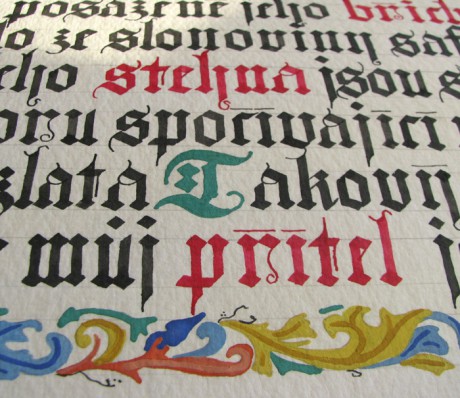 posázené jeho břich
o ze slonoviny saf
jeho stehna jsou s
oru spočívající
zlata Takový
můj přítel j